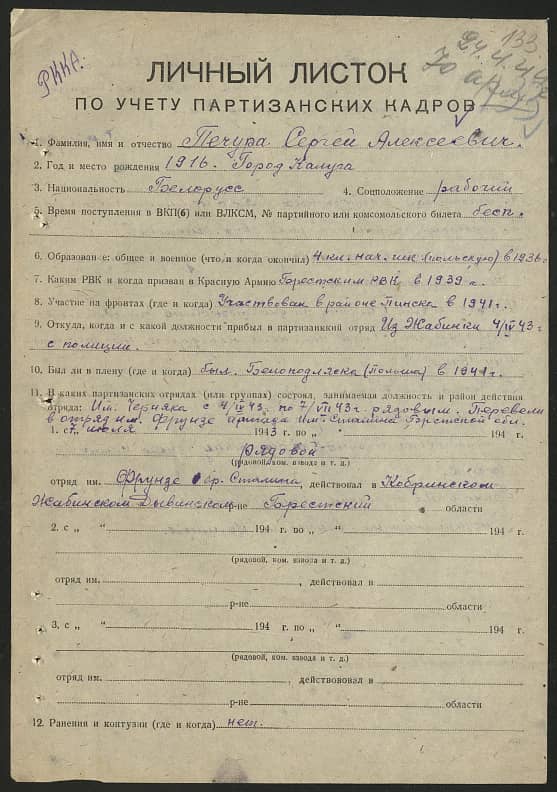 133
24.4.44
РККА.
ЛИЧНЫЙ ЛИСТОК
ПО УЧЕТУ ПАРТИЗАНСКИХ КАДРОВ
1. Фамилия, имя и отчество Печура Сергей Алексеевич.
2. Год и место рождения 1916. Город Калуга
3. Национальность Белорусс 4. Соцположение рабочий
5. Время поступления в ВКП(б) или ВЛКСМ, № партийного или комсомольского билета бесп.
6. Образование: общее и военное (что и когда окончил) 4 кл. нач. шк (польскую) в 1936 г
7. Каким РВК и когда призван в Красную Армию Берестским РВК в 1939 г.
8. Участие на фронтах (где и когда) Участвовал в районе Пинска в 1941 г.
9. Откуда, когда и с какой должности прибыл в партизанский отряд Из Жабинки 4/IV 43 г
с полиции.
10. Был ли в плену (где и когда) был. Белоподляска (Польша) в 1941 г.
11. В каких партизанских отрядах (или группах) состоял, занимаемая должность и район действия
отряда: Им. Черняка с 4/IV 43. по 7/VII 43 г. рядовым. Перевели
в отряд им. Фрунзе бригада им. Сталина Берестской обл.
1. с 7 июля 1943 г. по „ “ 194 г.
рядовой
(рядовой, ком. взвода и т. д.)
отряд им. Фрунзе бр. Сталина, действовал в Кобринском
Жабинском Дывинском р-не Берестский области
2. с „ “ 194 г. по „ “ 194 г.
(рядовой, ком. взвода и т. д.)
отряд им. , действовал в
р-не области
3. с „ “ 194 г. по „ “ 194 г.
(рядовой, ком. взвода и т. д.)
отряд им. , действововал в
р-не области
12. Ранения и контузии (где и когда) нет.